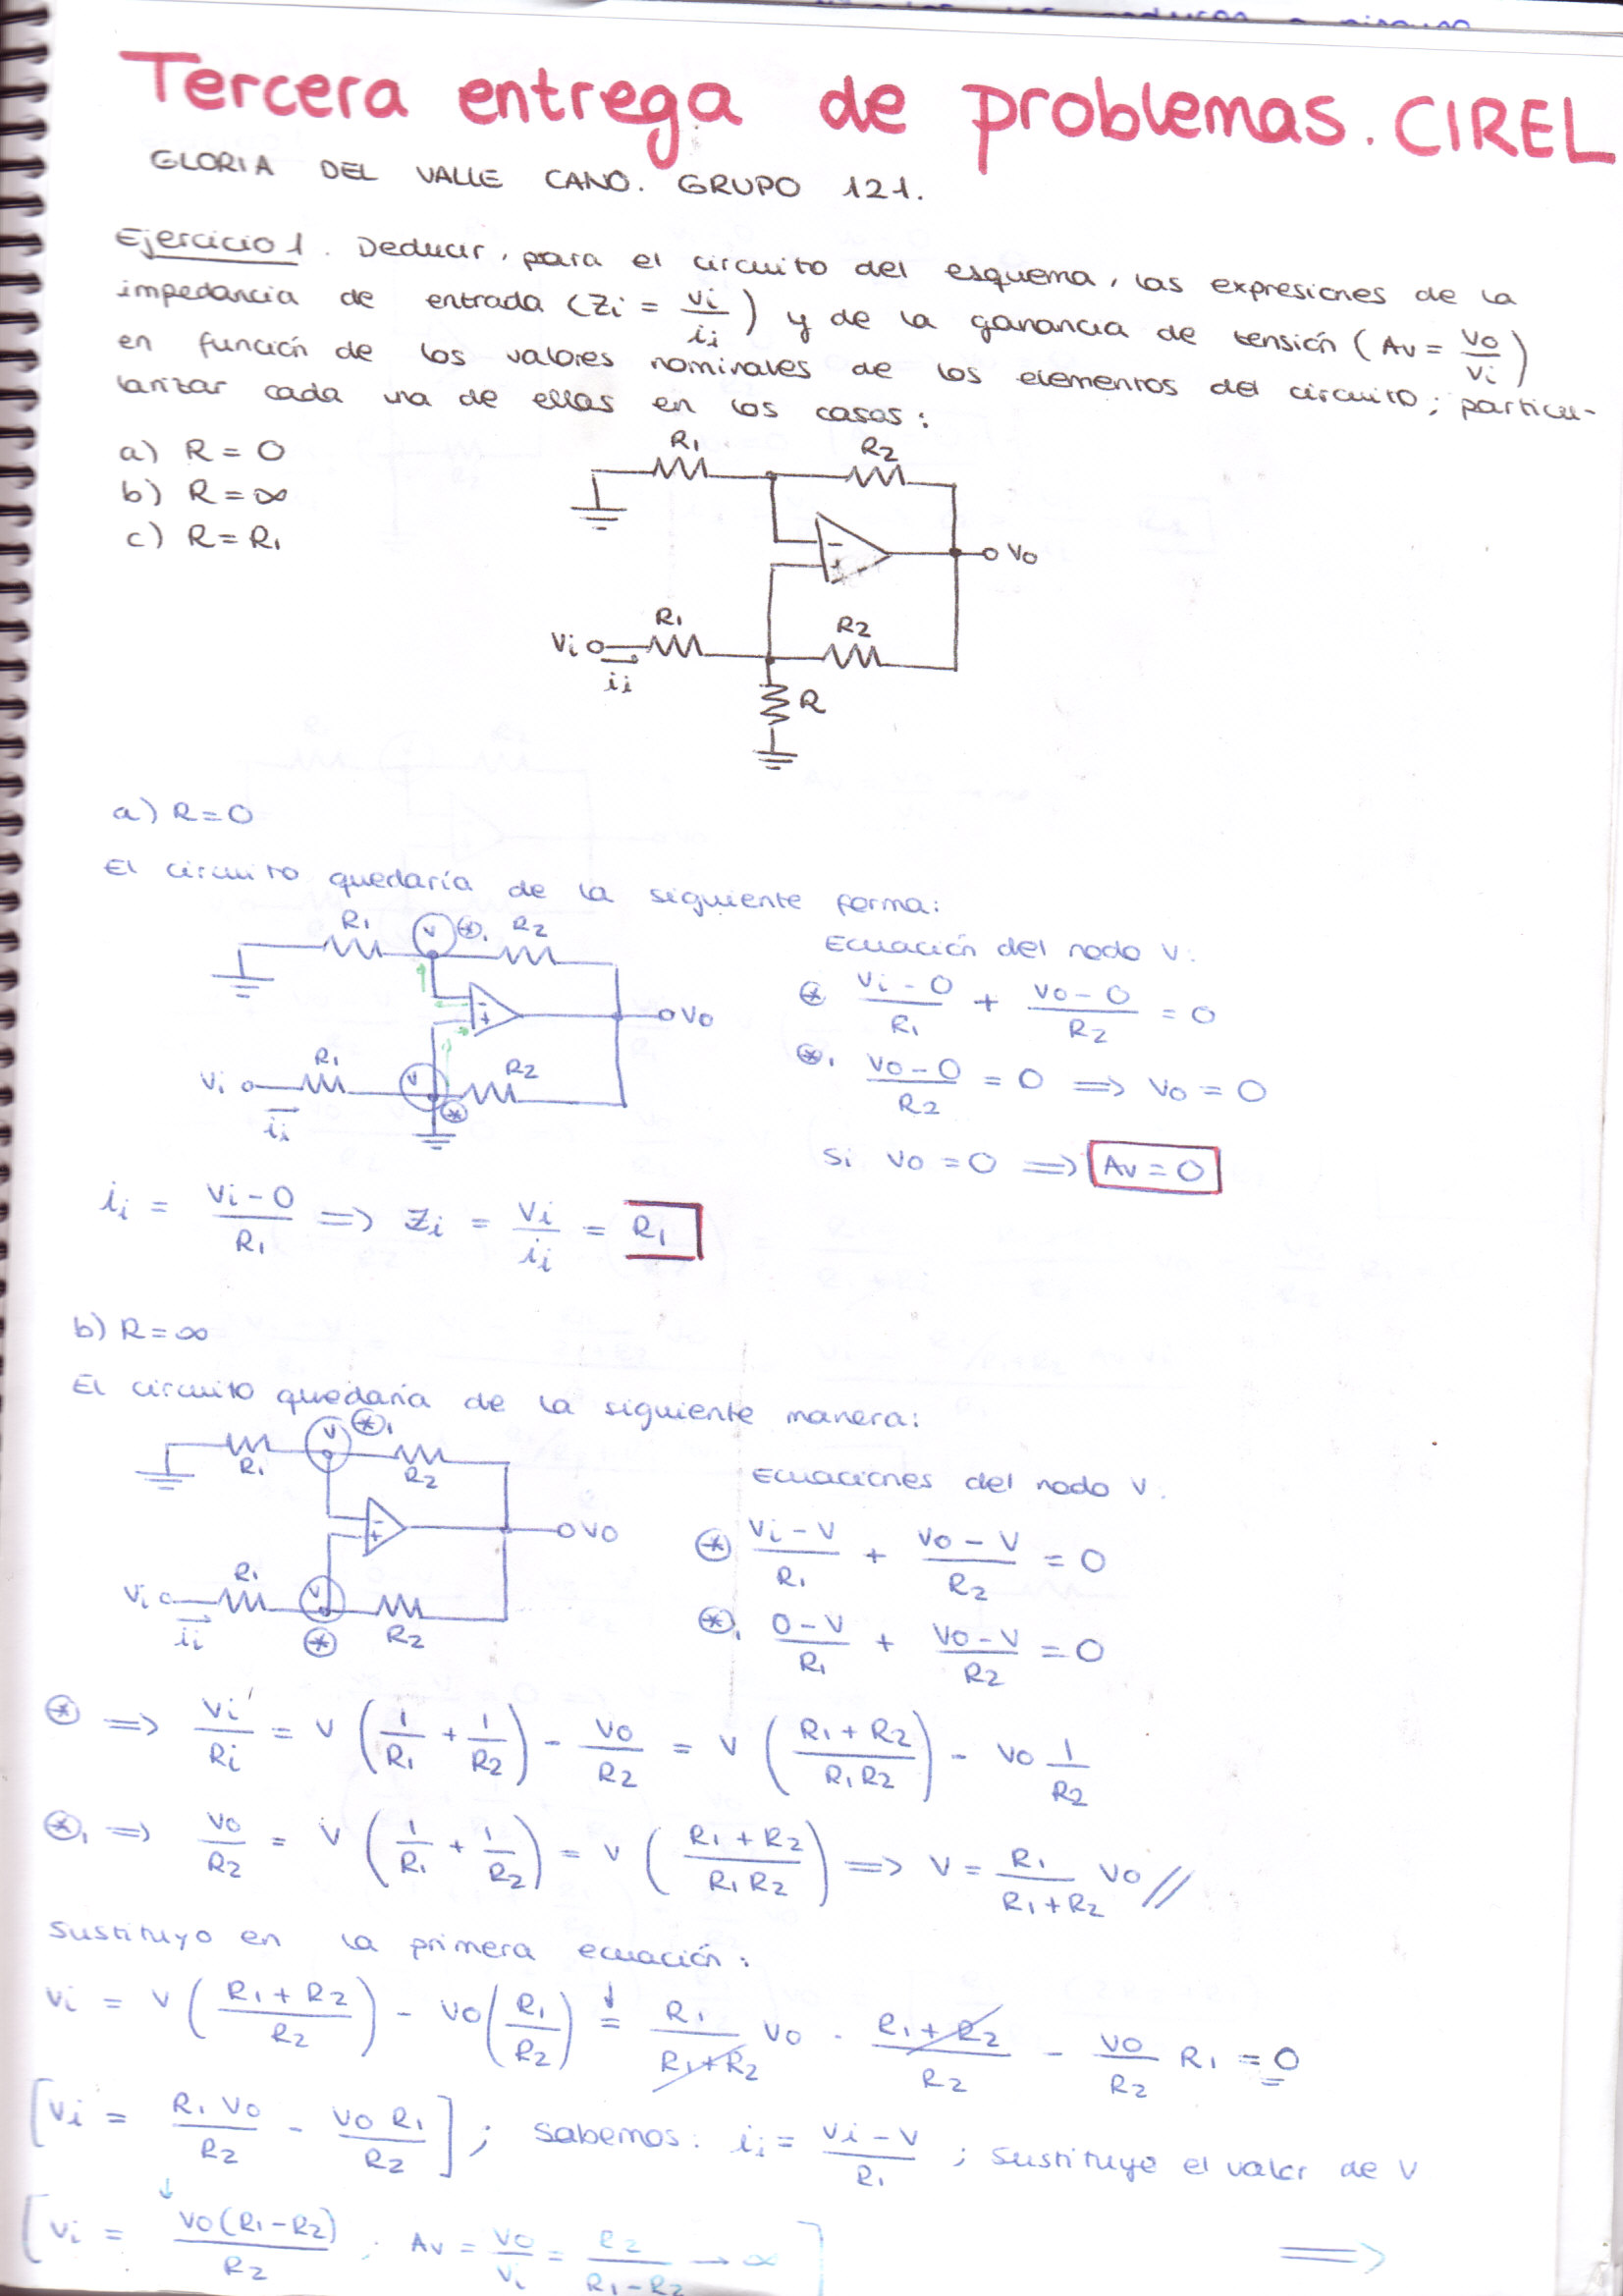 Tercera entrega de problemas. CIREL
GLORIA DEL VALLE CANO. GRUPO 121.
Ejercicio 1. Deducir, para el circuito del esquema, las expresiones de la
impedancia de entrada (Zi = vi/ii) y de la ganancia de tensión (Av = vo/vi)
en función de los valores nominales de los elementos del circuito; particu-
larizar cada una de ellas en los casos:
a) R = 0
b) R = ∞
c) R = R1
R1
R2
-
+
Vo
R1
R2
Vi
ii
R
a) R = 0
El circuito quedaría de la siguiente forma:
R1
V
⊛1
R2
-
+
Vo
R1
V
R2
Vi
ii
⊛
Ecuación del nodo V:
⊛ (Vi - 0)/R1 + (Vo - 0)/R2 = 0
⊛1 (Vo - 0)/R2 = 0 ⟹ Vo = 0
Si Vo = 0 ⟹ Av = 0
ii = (Vi - 0)/R1 ⟹ Zi = Vi/ii = R1
b) R = ∞
El circuito quedaría de la siguiente manera:
R1
V
⊛1
R2
-
+
Vo
R1
V
R2
Vi
ii
⊛
Ecuaciones del nodo V.
⊛ (Vi - V)/R1 + (Vo - V)/R2 = 0
⊛1 (0 - V)/R1 + (Vo - V)/R2 = 0
⊛ ⟹ Vi/Ri = V (1/R1 + 1/R2) - Vo/R2 = V ((R1 + R2)/(R1 R2)) - Vo 1/R2
⊛1 ⟹ Vo/R2 = V (1/R1 + 1/R2) = V ((R1 + R2)/(R1 R2)) ⟹ V = R1/(R1 + R2) Vo //
Sustituyo en la primera ecuación:
Vi = V ((R1 + R2)/R2) - Vo (R1/R2) ↓= R1/(R1 + R2) Vo · (R1 + R2)/R2 - Vo/R2 R1 = 0
[Vi = R1 Vo/R2 - Vo R1/R2]; Sabemos: ii = (Vi - V)/R1; Sustituyo el valor de V
↓
[Vi = Vo(R1 - R2)/R2; Av = Vo/Vi = R2/(R1 - R2) → ∞] ⟹